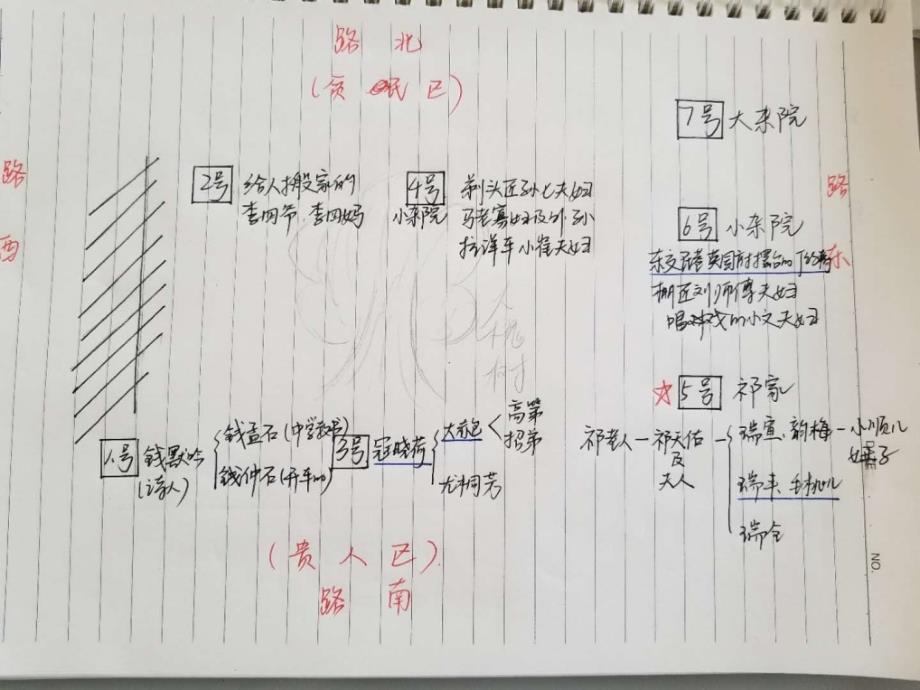 路北
(贫民区)
7号 大杂院
路西
路东
2号 给人搬家的
李四爷、李四妈
4号 剃头匠孙七夫妇
小杂院 马老寡妇及外孙
拉洋车小崔夫妇
6号 小杂院
东交民巷英国府摆台的丁约翰
棚匠刘师傅夫妇
唱戏的小文夫妇
槐树
☆5号 祁家
1号 钱默吟
(诗人)
钱孟石(中学教书)
钱仲石(开车的)
3号 冠晓荷
大赤包
高第
招弟
尤桐芳
祁老人—祁天佑
及
夫人
瑞宣、韵梅—小顺儿
妞子
瑞丰、
瑞全
(贵人区)
路南
NO.